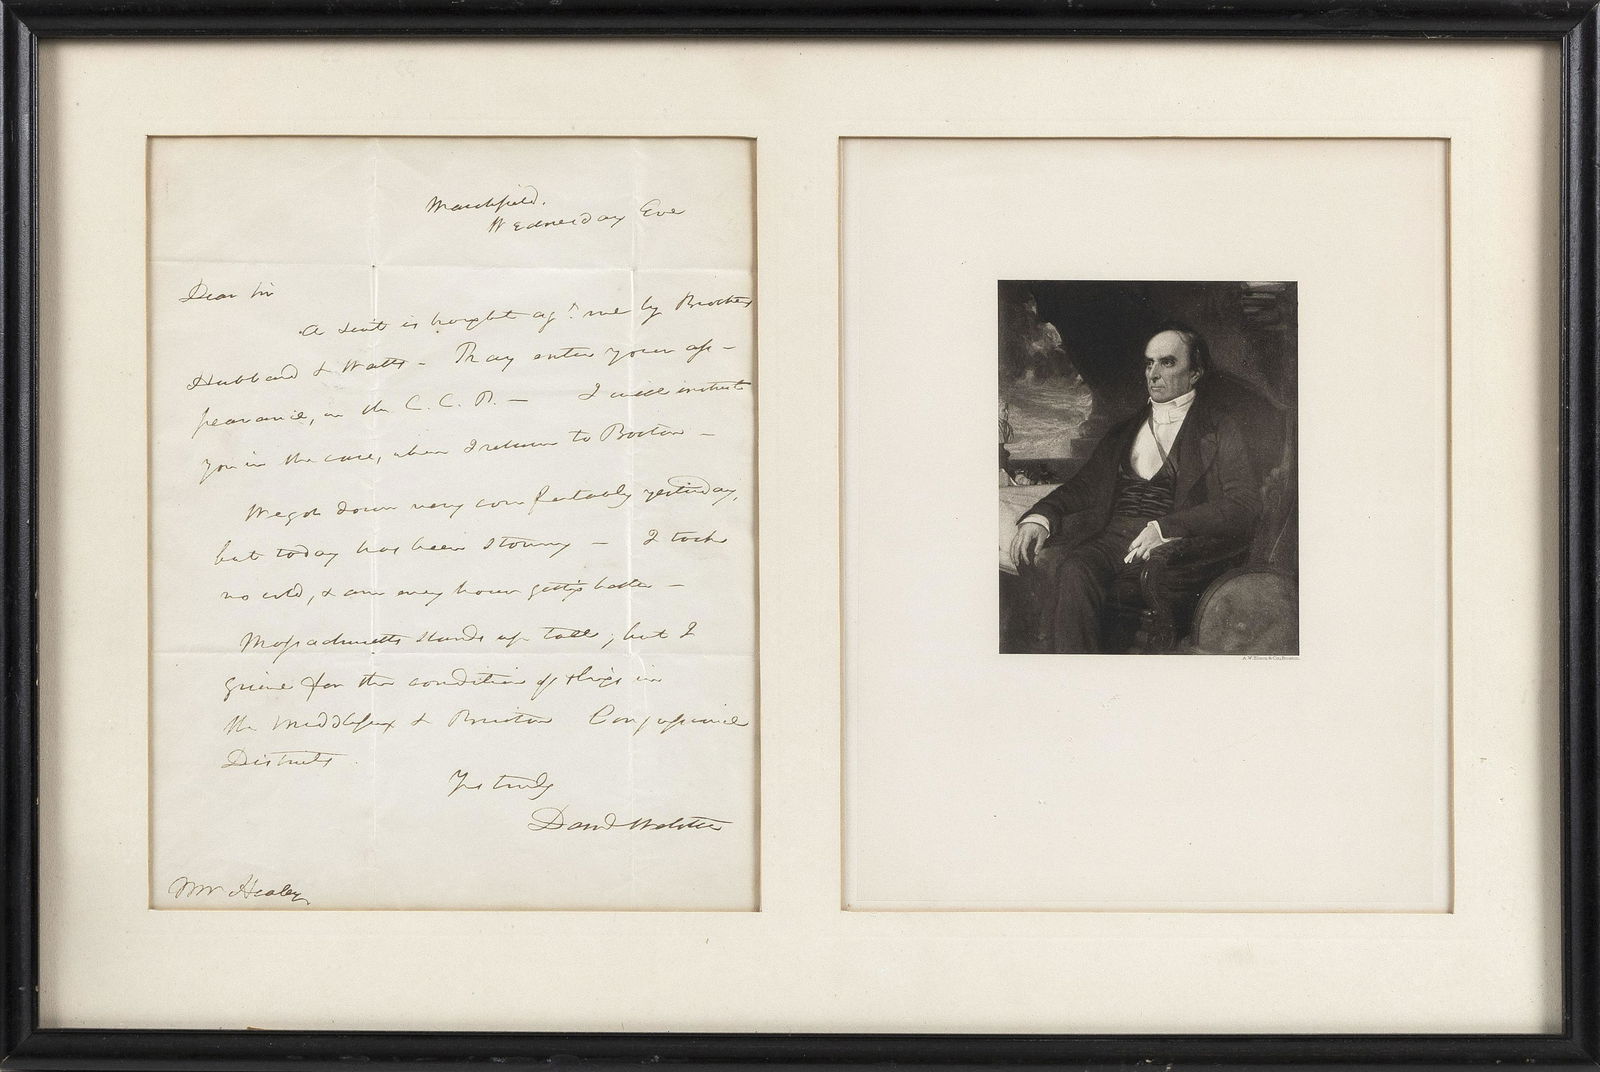 Marshfield.
Wednesday Eve
Dear Sir
A suit is brought agt. me by Brookes
Hubbard & Watts - Pray enter your ap-
pearance, in the C. C. P. - I will instruct
you in the case, when I return to Boston -
We got down very comfortably yesterday,
but today has been stormy - I took
no cold, & am every hour gettg better -
Massachusetts stands up tall, but I
grieve for the condition of things in
the Middlesex & Bristol Congressional
Districts.
Yrs truly
Danl Webster
Mr Healey
A.W. Elson & Co., Boston